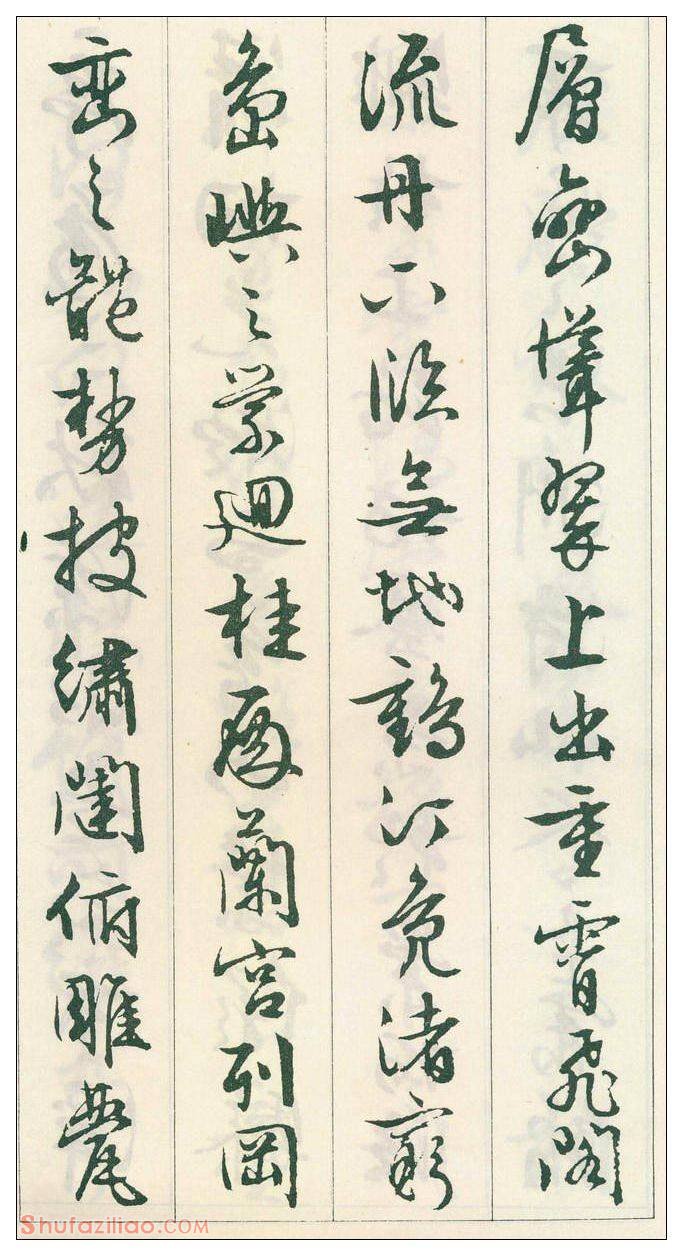 層巒聳翠上出重霄飛閣
流丹下臨無地鶴汀鳧渚窮
島嶼之縈廻桂殿蘭宮列岡
巒之體勢披繡闥俯雕甍
Shufaziliao.COM